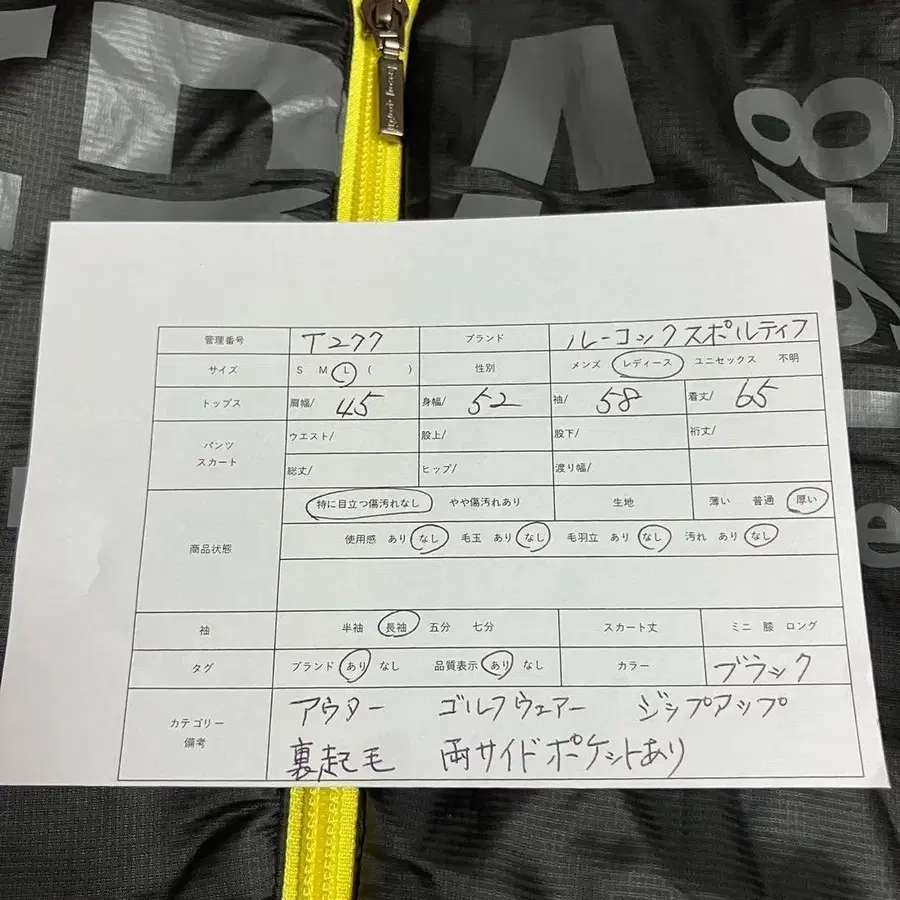 管理番号 T277 ブランド ルーコックスポルティフ
サイズ S M L ( ) 性別 メンズ レディース ユニセックス 不明
トップス 肩幅/ 45 身幅/ 52 袖/ 58 着丈/ 65
パンツ スカート ウエスト/ 股上/ 股下/ 裄丈/
総丈/ ヒップ/ 渡り幅/
商品状態 特に目立つ傷汚れなし やや傷汚れあり 生地 薄い 普通 厚い
使用感 あり なし 毛玉 あり なし 毛羽立 あり なし 汚れ あり なし
袖 半袖 長袖 五分 七分 スカート丈 ミニ 膝 ロング
タグ ブランド あり なし 品質表示 あり なし カラー ブラック
カテゴリー 備考 アウター ゴルフウェアー ジップアップ
裏起毛 両サイドポケットあり